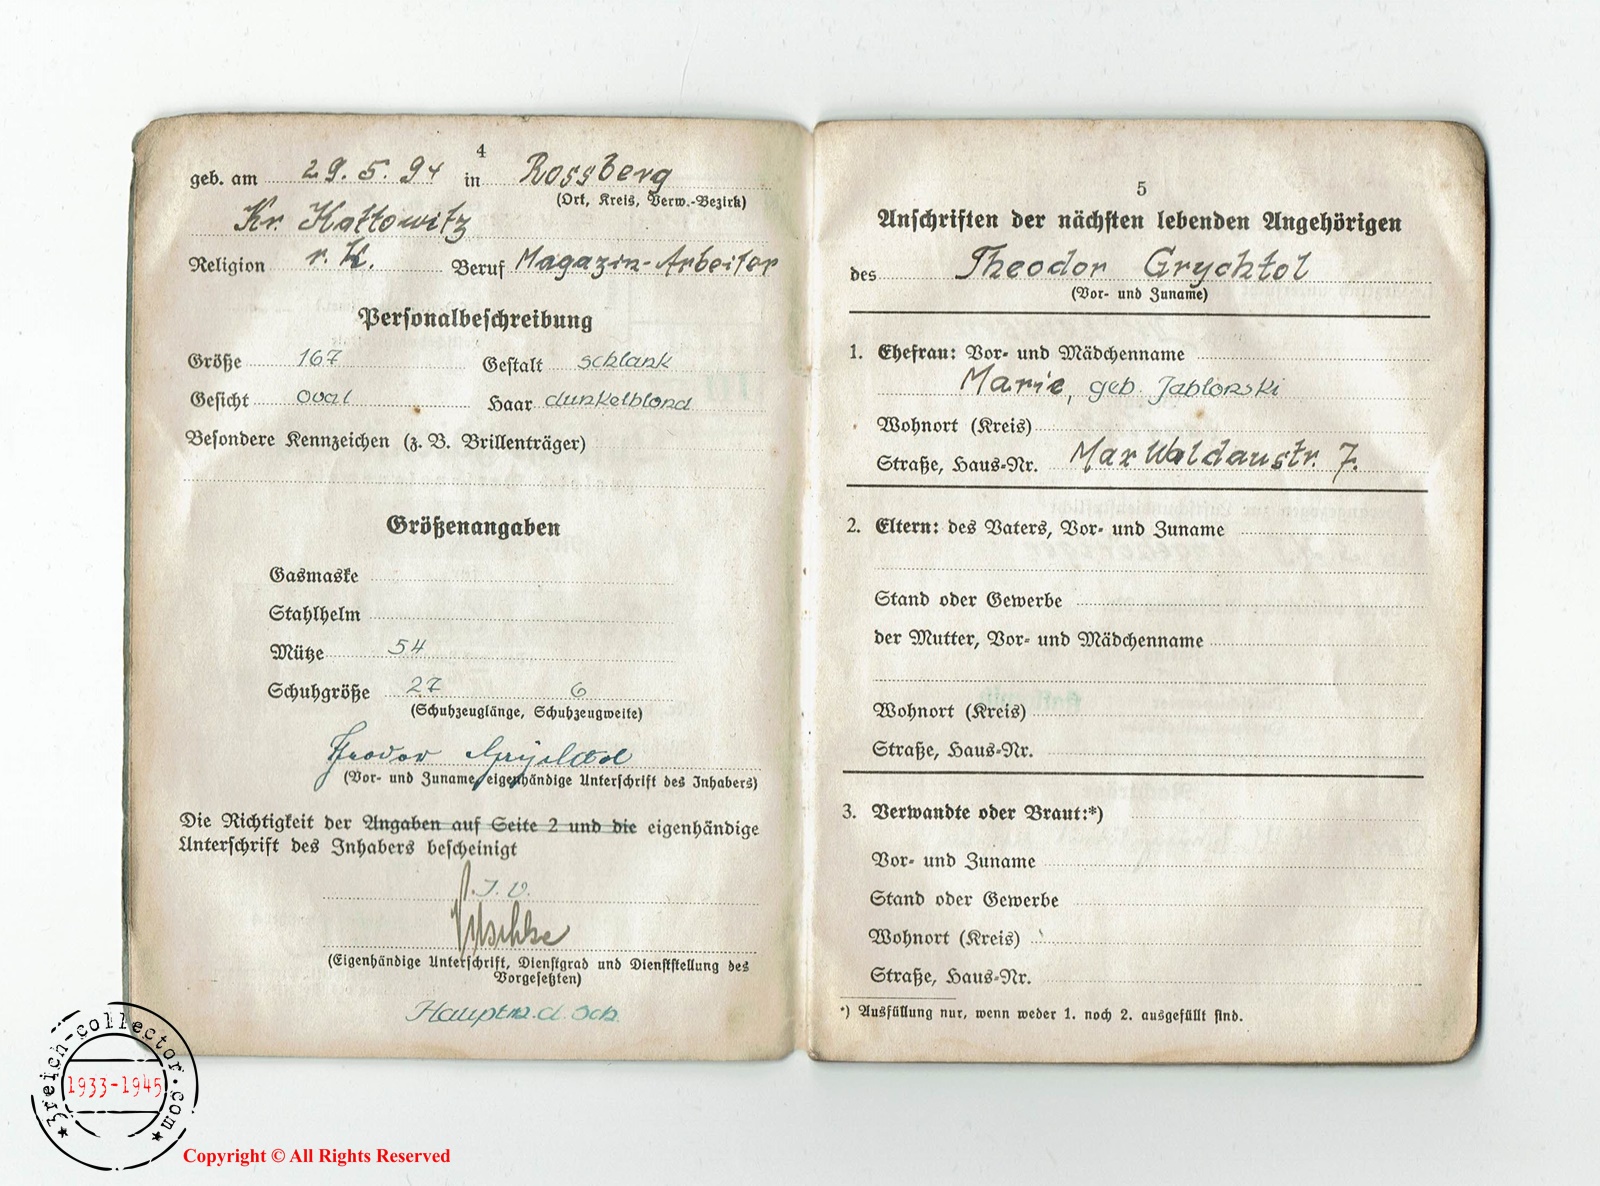 4
geb. am 29.5.94 in Rossberg
(Ort, Kreis, Verw.-Bezirk)
Kr. Kattowitz
Religion r. K. Beruf Magazin-Arbeiter
Personalbeschreibung
Größe 167 Gestalt schlank
Gesicht oval Haar dunkelblond
Besondere Kennzeichen (z. B. Brillenträger)
Größenangaben
Gasmaske
Stahlhelm
Mütze 54
Schuhgröße 27 6
(Schuhzeuglänge, Schuhzeugweite)
Theodor Grychtol
(Vor- und Zuname, eigenhändige Unterschrift des Inhabers)
Die Richtigkeit der Angaben auf Seite 2 und die eigenhändige
Unterschrift des Inhabers bescheinigt
I. V.
(Eigenhändige Unterschrift, Dienstgrad und Dienststellung des
Vorgesetzten)
Hauptm. d. Sch.
5
Anschriften der nächsten lebenden Angehörigen
des Theodor Grychtol
(Vor- und Zuname)
1. Ehefrau: Vor- und Mädchenname
Marie, geb. Jablonski
Wohnort (Kreis)
Straße, Haus-Nr. Max Waldaustr. 7.
2. Eltern: des Vaters, Vor- und Zuname
Stand oder Gewerbe
der Mutter, Vor- und Mädchenname
Wohnort (Kreis)
Straße, Haus-Nr.
3. Verwandte oder Braut:*)
Vor- und Zuname
Stand oder Gewerbe
Wohnort (Kreis)
Straße, Haus-Nr.
*) Ausfüllung nur, wenn weder 1. noch 2. ausgefüllt sind.
3reich-collector.com
1933-1945
Copyright © All Rights Reserved